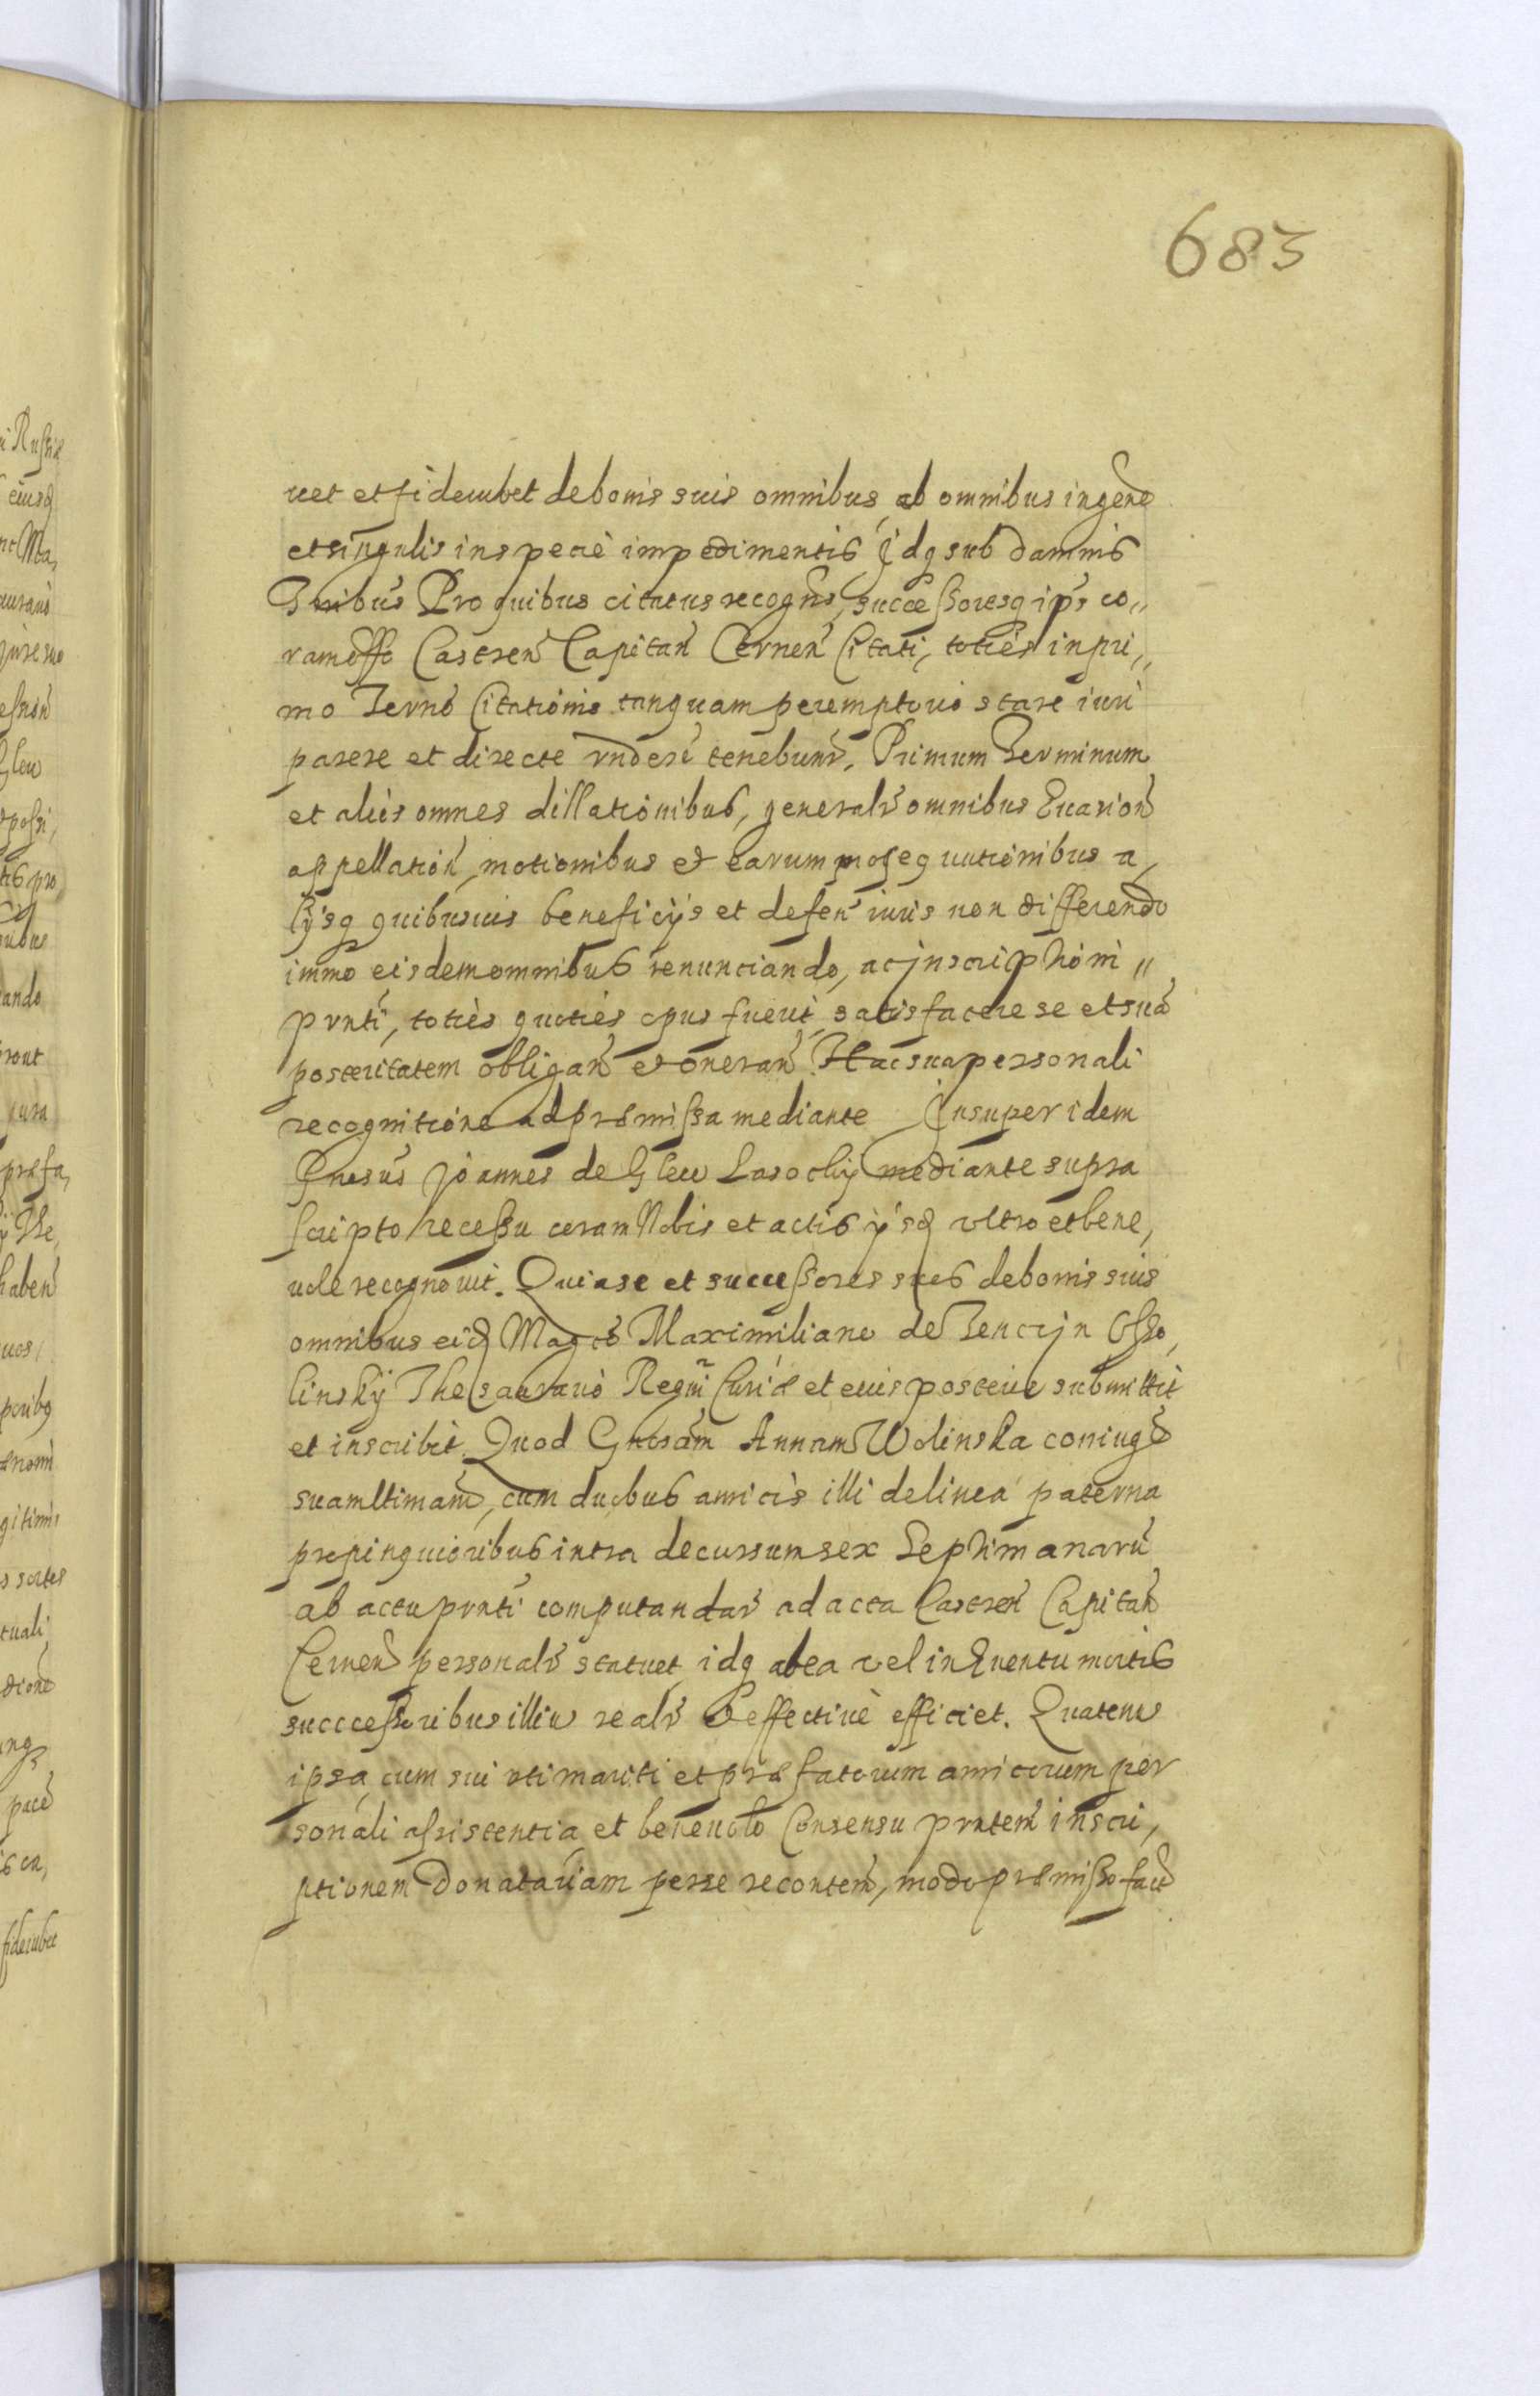 683
uet et fideiubet de bonis suis omnibus, ab omnibus in gene
et singulis in specie impedimentis Idq sub damnis
Tribus Pro quibus citatus recogns, successoresq ips co„
ram offo Castren Capitan Cernen Citati, toties in pri„
mo Terno Citationis tanquam peremptorio stare iuri
parere et directe rndere tenebunr, Primum Terminum
et aliis omnes dillationibus, generalr omnibus Euasion
appellation, motionibus et earum prosequutionibus a,
lÿsq quibusuis beneficÿs et defen iuris non differendo
immo eisdem omnibus renunciando, ac jnscriptioni„
prnti, toties quoties opus fuerit satisfacere se et sua
posteritatem obligan et oneran Hac sua personali
recognitione ad præmissa mediante Insuper idem
Gnosus Joannes de Glew Lasockÿ mediante supra
scripto recessu coram Nobis et actis ÿsq ultro et bene,
uole recognouit. Quia se et successores suos de bonis suis
omnibus eid Magco Maximiliano de Tencÿn Osso,
linskÿ Thesaurario Regni Curiæ et eius posteris submittit
et inscribit. Quod Gnosam Annam Wolinska coniugem
suam ltimam, cum duobus amicis illi de linea paterna
propinquioribus intra decursum sex Septimanaru
ab actu prnti computandar ad acta Castren Capitan
Cernen personalr statuet idq ab ea vel in Euentu mortis
succcessoribus illius realr et effectiue efficiet. Quatenus
ipsa cum sui ltimi mariti et præfatorum amicorum per
sonali assistentia et beneuolo Consensu prntem inscri,
ptionem Donatariam per se recontem, modo præmisso fact